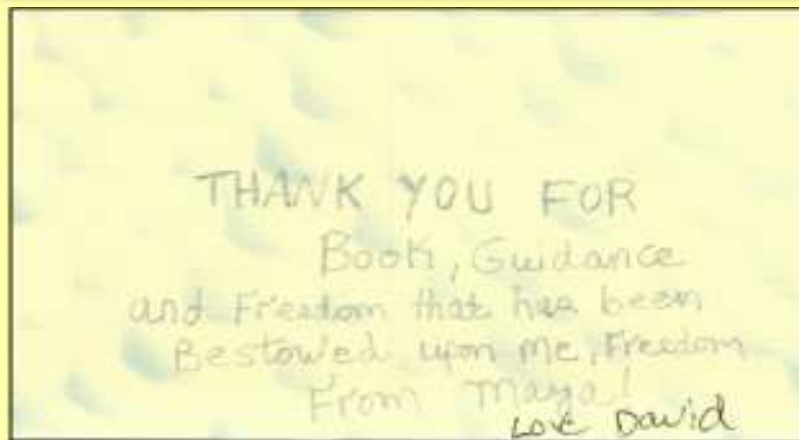 THANK YOU FOR
Book, Guidance
and Freedom that has been
Bestowed upon me, Freedom
From Maya!
Love David